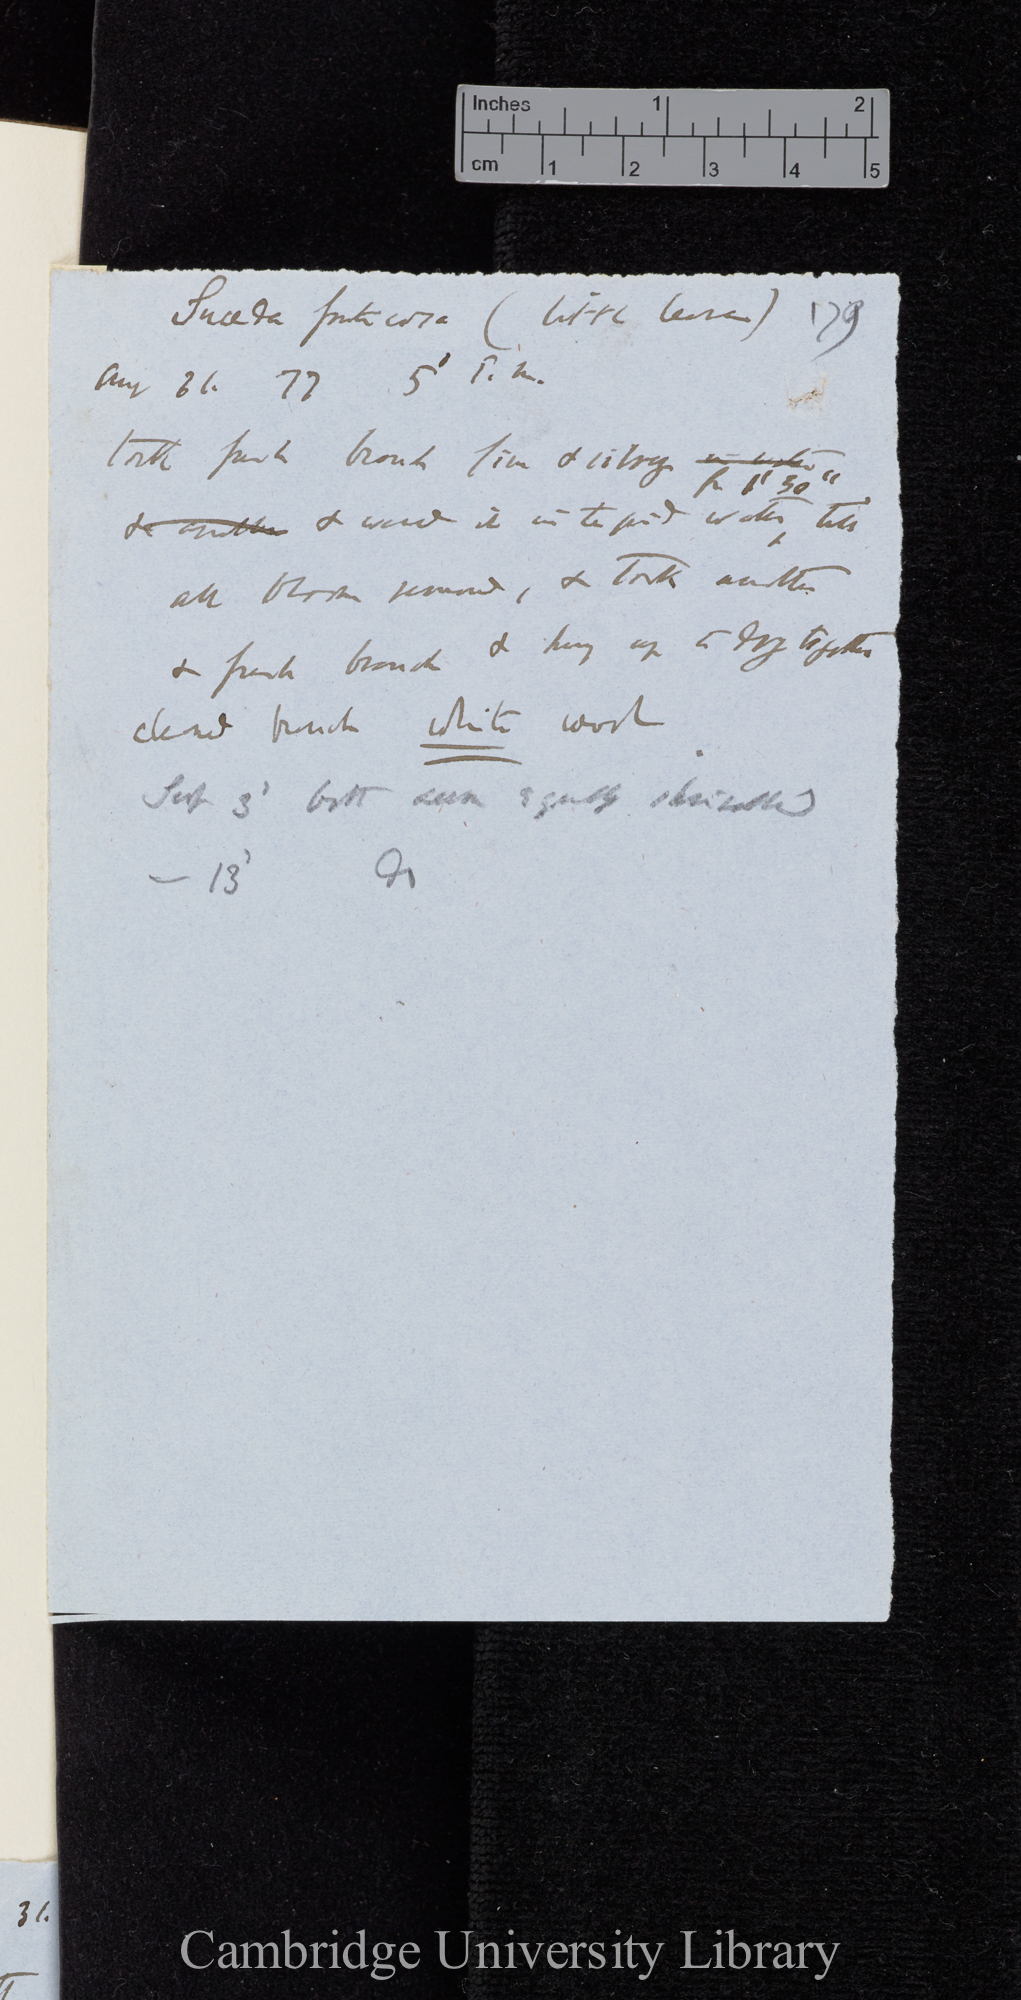 Inches 1 2
cm 1 2 3 4 5
Suæda fruticosa (little leaves) 179
Aug 31. 77 5° P.m.
Took fresh branch fine & in water
for 1° 30"
& another & washed it in tepid water, till
all bloom removed, & took another
& fresh branch & hung up to dry together
cleaned branch white wool
Sept 3° both seem equally shrivelled
— 13° Do
31.
Cambridge University Library